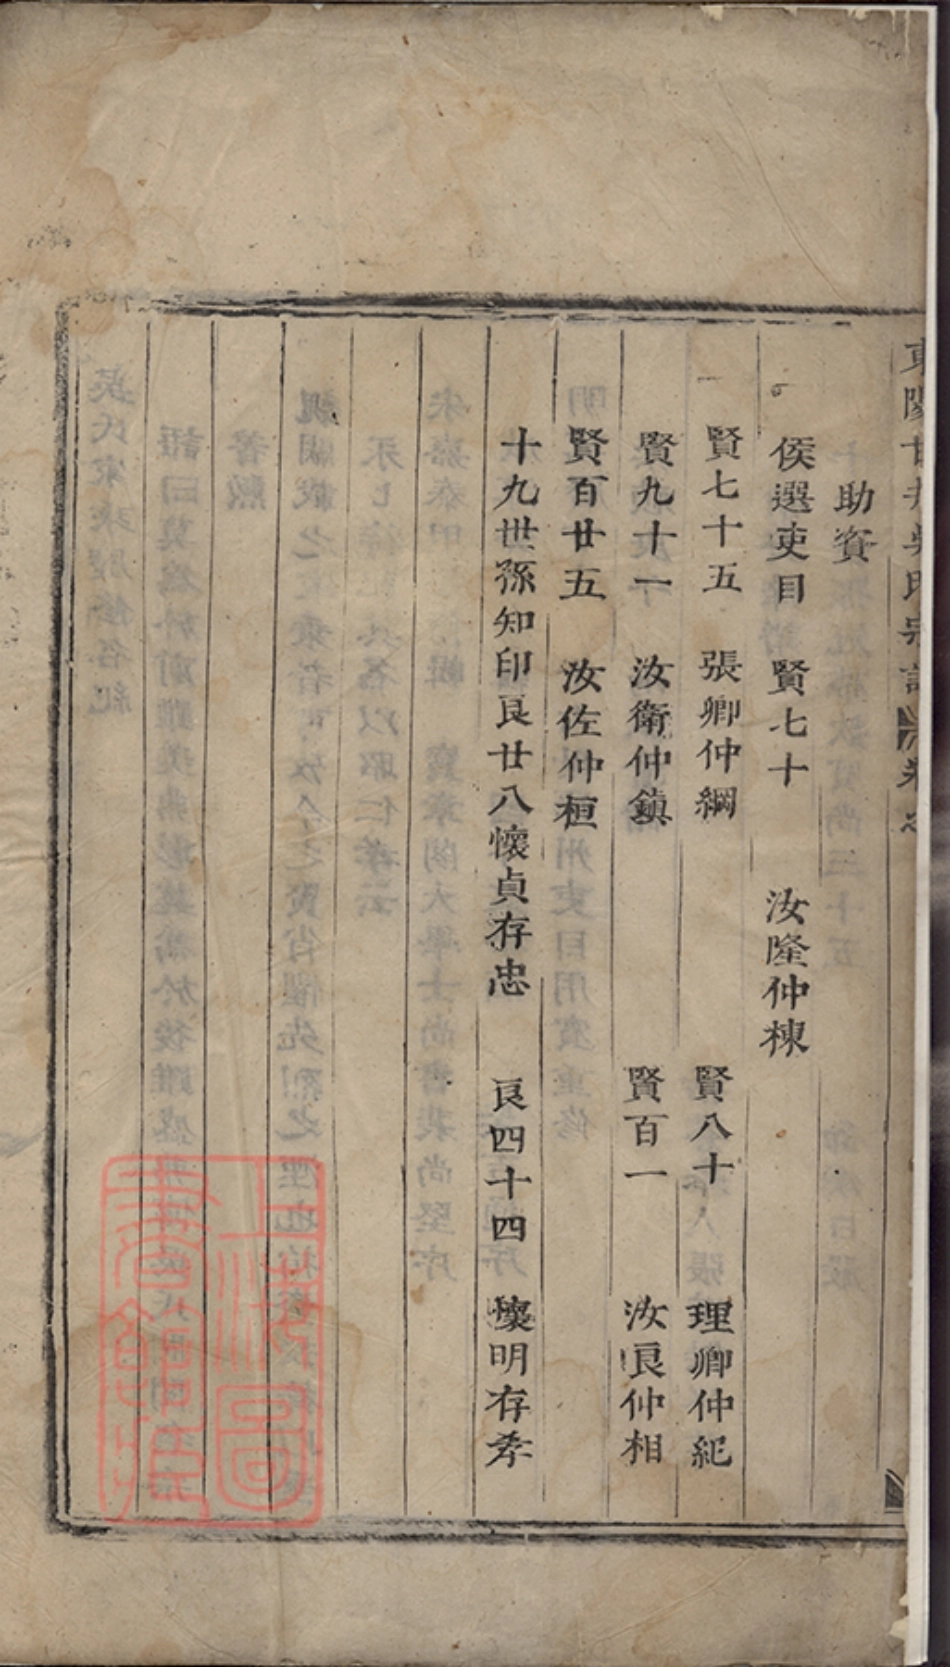 助資
侯選吏目 賢七十 汝隆仲棟
賢七十五 張卿仲綱 賢八十 理卿仲紀
賢九十一 汝衛仲鎮 賢百一 汝良仲相
賢百廿五 汝佐仲桓
十九世孫知印良廿八懷貞存忠 良四十四 懷明存孝
上海圖書館藏